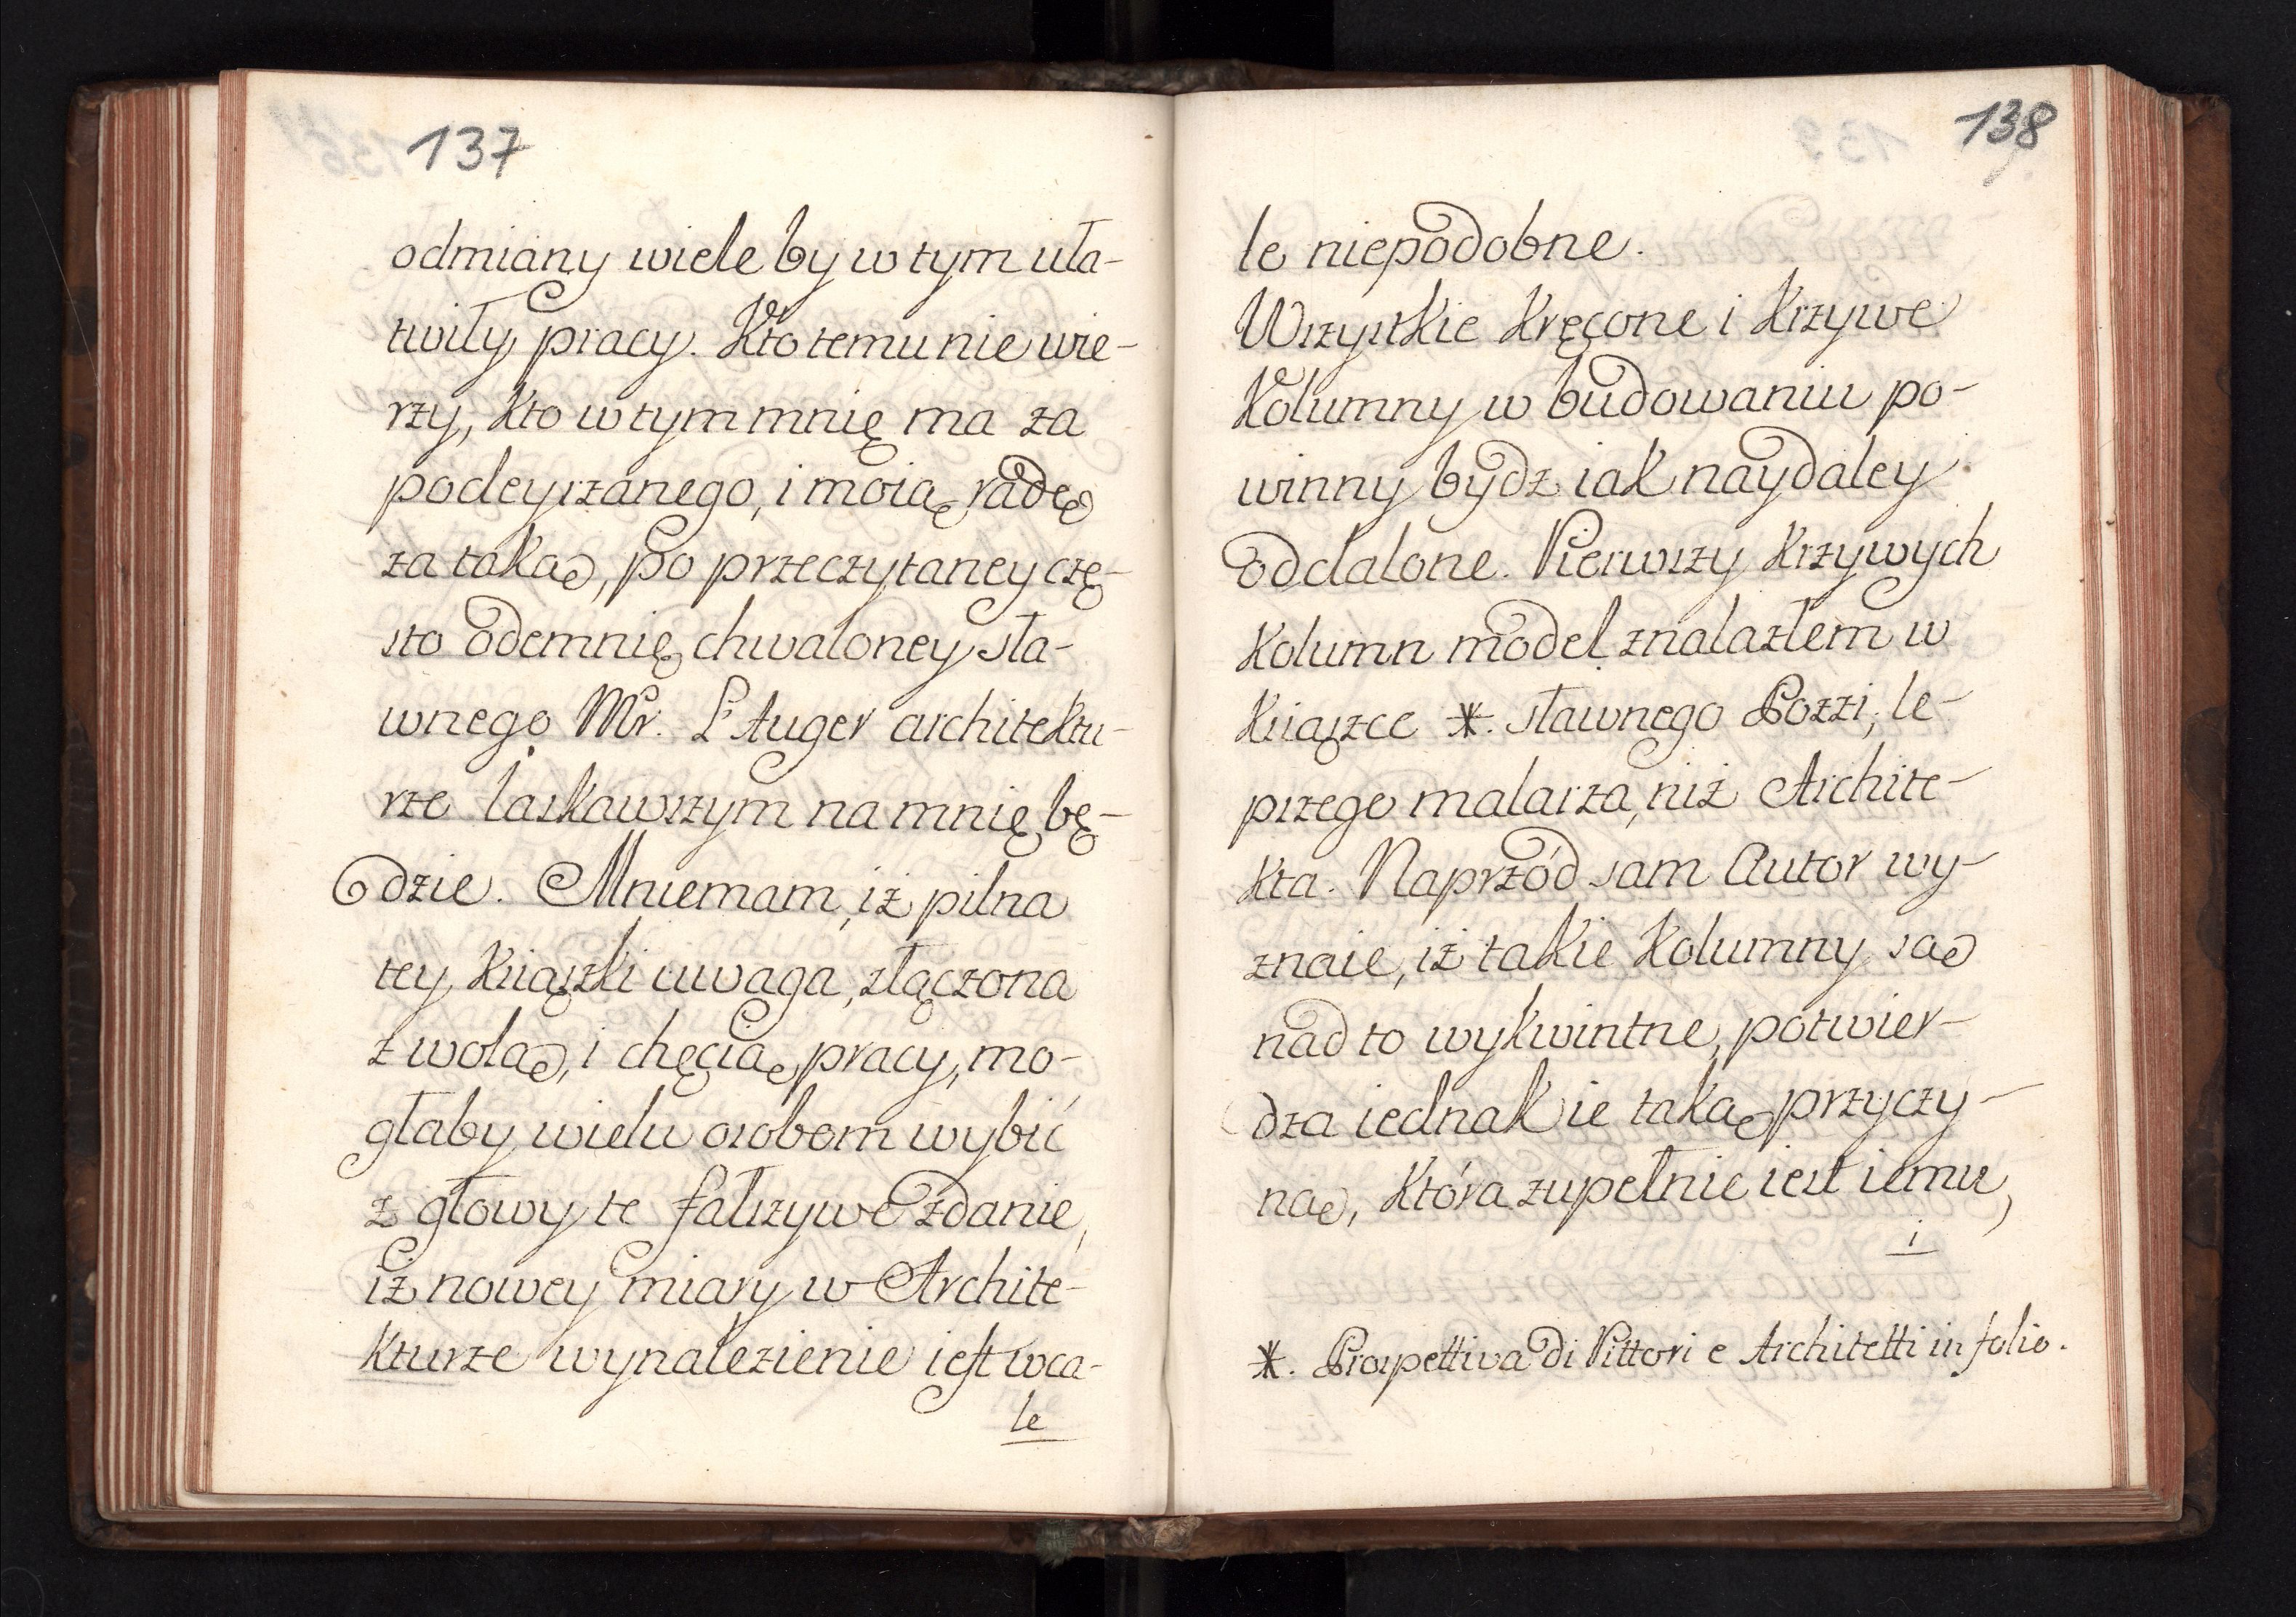 137
odmiany wiele by w tym uła-
twiły pracy. Kto temu nie wie-
rzy, kto w tym mnię ma za
podeyrzanego, i moią radę
za taką, po przeczytaney czę-
sto odemnię chwaloney sła-
wnego Mr. L'Auger architektu-
rze łaskawszym na mnię bę-
dzie. Mniemam, iż pilna
tey Książki uwaga, złączona
z wolą, i chęcią pracy, mo-
głaby wielu osobom wybić
z głowy te fałszywe zdanie,
iż nowey miary w Archite-
kturze wynalezienie iest wca-
le
138
le niepodobne.
Wszystkie kręcone i krzywe
Kolumny w budowaniu po-
winny bydz iak naydaley
oddalone. Pierwszy krzywych
Kolumn model znalazłem w
Książce *. sławnego Pozzi, le-
pszego malarza, niż Archite-
kta. Naprzód sam Autor wy-
znaie, iż takie Kolumny są
nad to wykwintne, potwier-
dza iednak ie taką przyczy-
ną, która zupełnie iest iemu,
i
*. Prospettiva di Pittori e Architetti in folio.